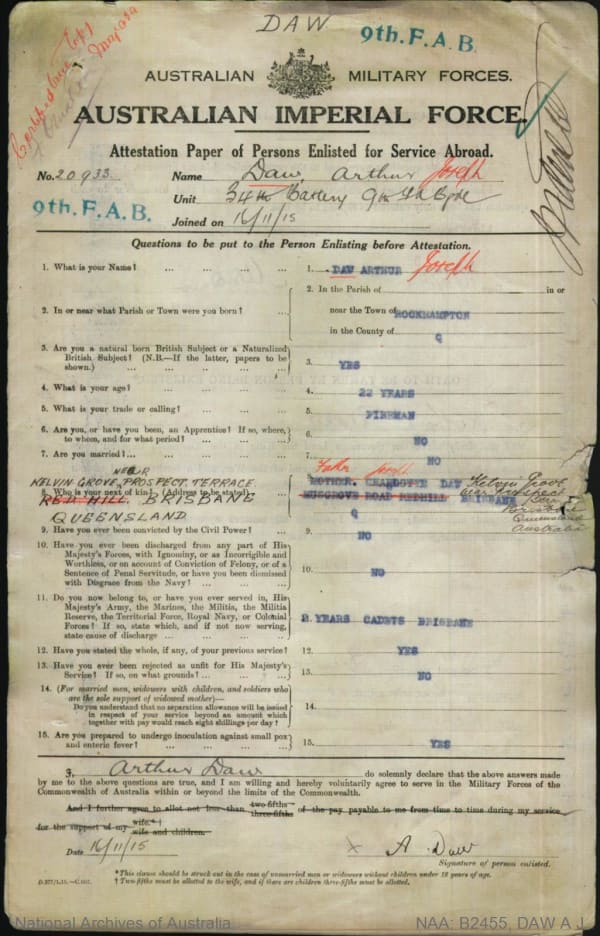 DAW
9th. F. A. B.
Certified true Copy
AUSTRALIAN MILITARY FORCES.
AUSTRALIAN IMPERIAL FORCE.
Attestation Paper of Persons Enlisted for Service Abroad.
No. 20933 Name Daw, Arthur Joseph
Unit 34th Battery 9th FA Bgde
9th. F. A. B.
Joined on 16/11/15
Questions to be put to the Person Enlisting before Attestation.
1. What is your Name? ... ... ... ... 1. DAW ARTHUR Joseph
2. In or near what Parish or Town were you born? ... 2. In the Parish of in or
near the Town of ROCKHAMPTON
in the County of Q
3. Are you a natural born British Subject or a Naturalized
British Subject? (N.B.—If the latter, papers to be
shown.) ... ... ... ... 3. YES
4. What is your age? ... ... ... ... 4. 22 YEARS
5. What is your trade or calling? ... ... ... 5. FIREMAN
6. Are you, or have you been, an Apprentice? If so, where,
to whom, and for what period? ... ... ... 6. NO
7. Are you married? ... ... ... ... 7. NO
NEAR Father Joseph
KELVIN GROVE, PROSPECT TERRACE. MOTHER. CHARLOTTE DAW Kelvin Grove
8. Who is your next of kin? (Address to be stated) ... 8. MUSGROVE ROAD REDHILL BRISBANE near Prospect
RED HILL. BRISBANE Q
QUEENSLAND Queensland
Australia
9. Have you ever been convicted by the Civil Power? ... 9. NO
10. Have you ever been discharged from any part of His
Majesty's Forces, with Ignominy, or as Incorrigible and
Worthless, or on account of Conviction of Felony, or of a
Sentence of Penal Servitude, or have you been dismissed
with Disgrace from the Navy? ... ... ... 10. NO
11. Do you now belong to, or have you ever served in, His
Majesty's Army, the Marines, the Militia, the Militia
Reserve, the Territorial Force, Royal Navy, or Colonial
Forces? If so, state which, and if not now serving,
state cause of discharge ... ... ... 11. 2 YEARS CADETS BRISBANE
12. Have you stated the whole, if any, of your previous service? 12. YES
13. Have you ever been rejected as unfit for His Majesty's
Service? If so, on what grounds? ... ... ... 13. NO
14. (For married men, widowers with children, and soldiers who
are the sole support of widowed mother)—
Do you understand that no separation allowance will be issued
in respect of your service beyond an amount which
together with pay would reach eight shillings per day? 14.
15. Are you prepared to undergo inoculation against small pox
and enteric fever? ... ... ... ... 15. YES
I, Arthur Daw do solemnly declare that the above answers made
by me to the above questions are true, and I am willing and hereby voluntarily agree to serve in the Military Forces of the
Commonwealth of Australia within or beyond the limits of the Commonwealth.
And I further agree to allot not less than two-fifths three-fifths of the pay payable to me from time to time during my service
for the support of my wife.*† wife and children.
Date 16/11/15 × A. Daw
Signature of person enlisted.
* This clause should be struck out in the case of unmarried men or widowers without children under 18 years of age.
† Two-fifths must be allotted to the wife, and if there are children three-fifths must be allotted.
National Archives of Australia NAA: B2455, DAW A J